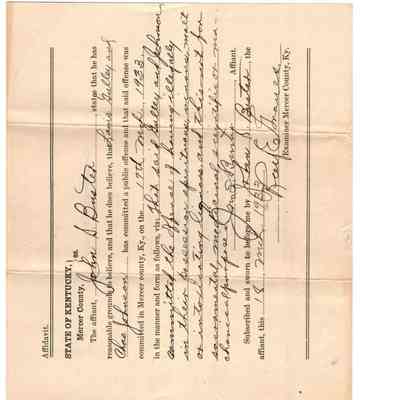 Affidavit.
STATE OF KENTUCKY, } ss.
Mercer County,
The affiant, John S Buster, states that he has
reasonable grounds to believe, and that he does believe, that Gulley and
Johnson has committed a public offense and that said offense was
committed in Mercer county, Ky., on the 17th May 1923
in the manner and form as follows, viz: that said Gulley and Johnson
committed the offense of having illegally
in their possession spirituous, vinous, malt
or intoxicating liquors and this not for
sacramental, medicinal, scientific or me-
chanical purpose
, Affiant.
Subscribed and sworn to before me by John S Buster, the
affiant, this 18 May 1923
Examiner Mercer County, Ky.